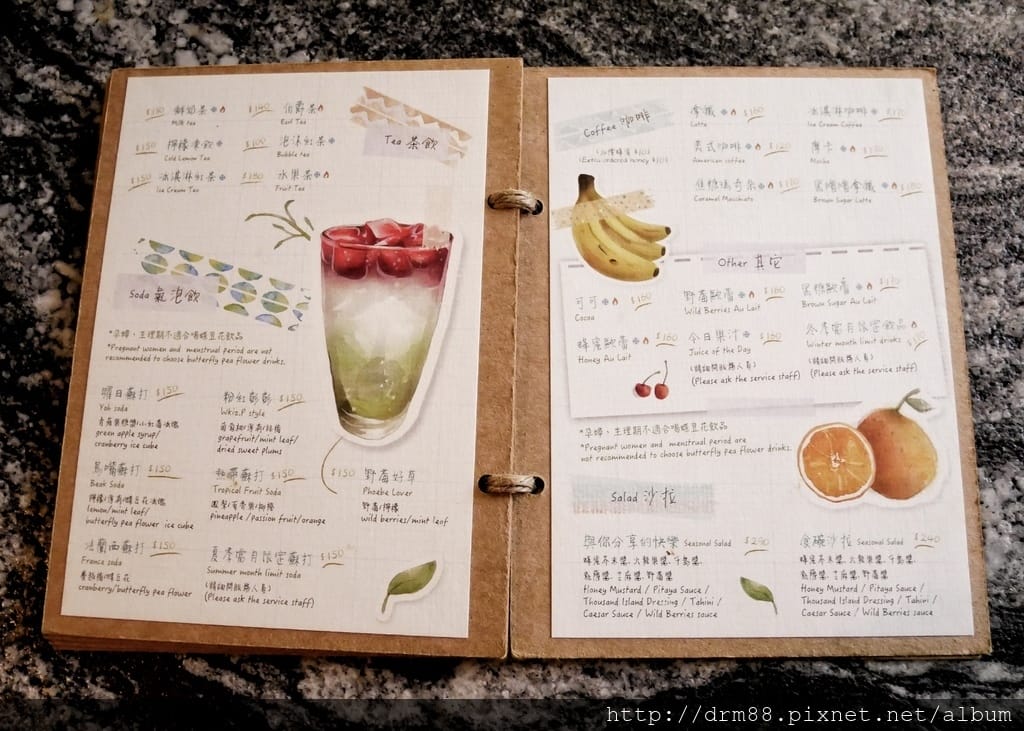 Tea 茶飲
$150 鮮奶茶
Milk tea
$140 伯爵茶
Earl Tea
$150 檸檬凍飲
Cold Lemon Tea
泡沫紅茶
Bubble tea
$150 冰淇淋紅茶
Ice Cream Tea
$180 水果茶
Fruit Tea
Soda 氣泡飲
*孕婦、生理期不適合喝蝶豆花飲品
*Pregnant women and menstrual period are not
recommended to choose butterfly pea flower drinks.
曜日蘇打 $150
Yob soda
green apple syrup/
cranberry ice cube
粉紅彭彭 $150
Wkiz.P style
grapefruit/mint leaf/
dried sweet plums
鳥嘴蘇打 $150
Beak Soda
lemon/mint leaf/
butterfly pea flower ice cube
熱帶蘇打 $150
Tropical Fruit Soda
鳳梨/百香果/柳橙
pineapple /passion fruit/orange
$150 野莓好草
Phoebe Lover
野莓/檸檬
wild berries/mint leaf
法蘭西蘇打 $150
France soda
蔓越莓/蝶豆花
cranberry/butterfly pea flower
夏季當月限定蘇打 $150
Summer month limit soda
(請詢問服務人員)
(Please ask the service staff)
Coffee 咖啡
(Extra ordered honey $10)
拿鐵 $160
Latte
冰淇淋咖啡
Ice Cream Coffee
美式咖啡 $120
American coffee
摩卡
Mocha
焦糖瑪奇朵
Caramel Macchiato
黑嚕嚕拿鐵 $180
Brown Sugar Latte
Other 其它
可可 $160
Cocoa
野莓歐蕾 $160
Wild Berries Au Lait
黑糖歐蕾
Brown Sugar Au Lait
蜂蜜歐蕾 $160
Honey Au Lait
今日果汁 $160
Juice of the Day
(請詢問服務人員)
(Please ask the service staff)
冬季當月限定飲品
Winter month limit drinks
(請詢問服務人員)
(Please ask the service staff)
*孕婦、生理期不適合喝蝶豆花飲品
*Pregnant women and menstrual period are
not recommended to choose butterfly pea flower drinks.
Salad 沙拉
與你分享的快樂 Seasonal Salad $290
蜂蜜芥末醬、火龍果醬、千島醬、
凱薩醬、芝麻醬、野莓醬
Honey Mustard / Pitaya Sauce /
Thousand Island Dressing / Tahini /
Caesar Sauce / Wild Berries sauce
沙拉 Seasonal Salad $240
蜂蜜芥末醬、火龍果醬、千島醬、
凱薩醬、芝麻醬、野莓醬
Honey Mustard / Pitaya Sauce /
Thousand Island Dressing / Tahini /
Caesar Sauce / Wild Berries sauce
http://drm88.pixnet.net/album